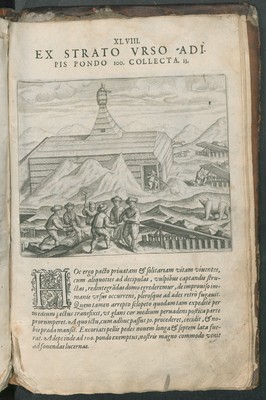 XLVIII.
EX STRATO VRSO ADI-
PIS PONDO 100. COLLECTA. 13.
HOc ergo pacto priuatam & solitariam vitam viuentes,
cum aliquoties ad decipulas, vulpibus captandis struc-
tas, redintegrãdas domo egrederemur, de improuiso im-
manis vrsus occurrens, plerosque ad ædes retrò fugauit.
Quem tamen arrepto sclopeto quidam tam expeditè per
medium pectus transfixit, vt glans cor medium peruadens postica parte
prorumperet. A quo ictu, cum adhuc passus 30. procederet, cecidit, & no-
bis præda mansit. Excoriati pellis pedes nouem longa & septem lata fue-
rat. Adeps inde ad 100. pondo exemptus, nostris magno commodo venit
ad fouendas lucernas.